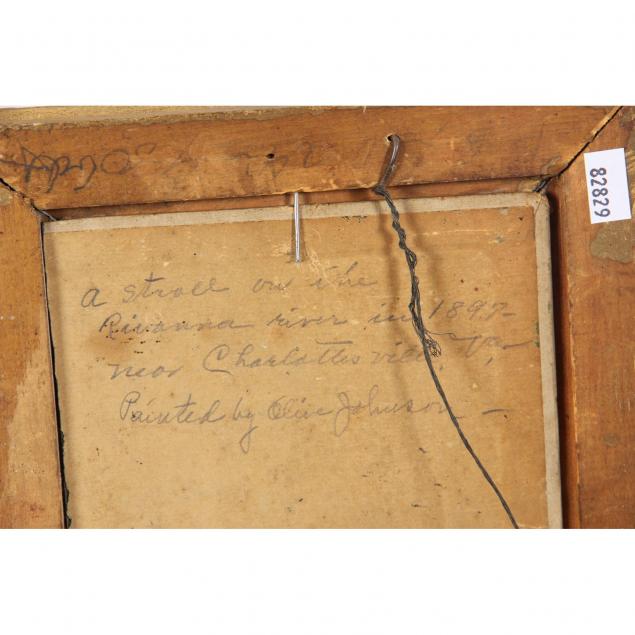 82829
a stroll on the
Rivanna river in 1897-
near Charlottesville, Va,
Painted by Olive Johnson -